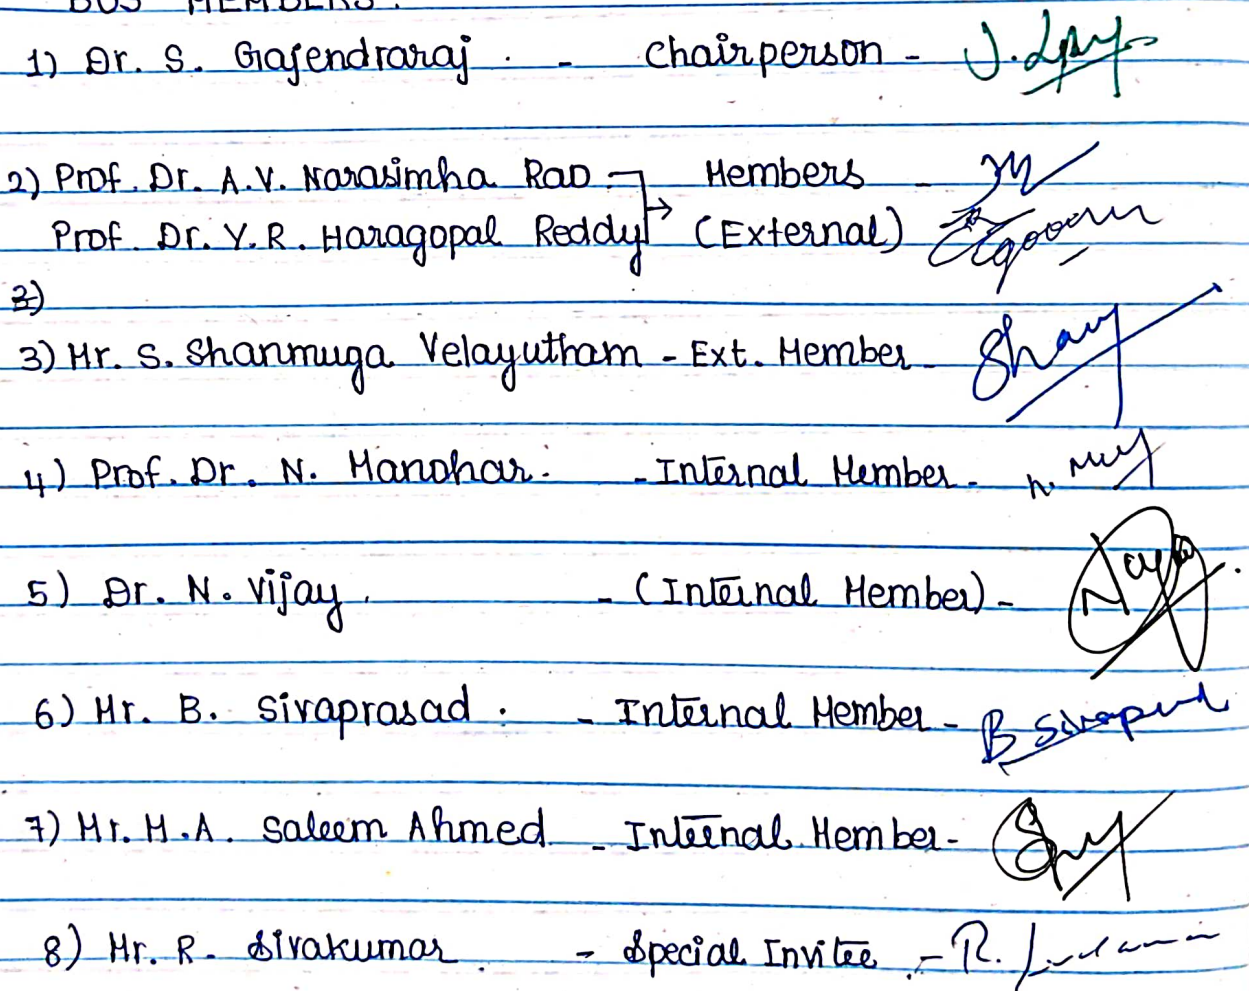 BOS MEMBERS:
1) Dr. S. Gajendraraj. - Chairperson -
2) Prof. Dr. A.V. Narasimha Rao Members -
Prof. Dr. Y.R. Haragopal Reddy → (External)
3)
3) Mr. S. Shanmuga Velayutham - Ext. Member -
4) Prof. Dr. N. Manohar. - Internal Member -
5) Dr. N. Vijay. - (Internal Member) -
6) Mr. B. Sivaprasad. - Internal Member - B Sivaprasad
7) Mr. M.A. Saleem Ahmed - Internal Member -
8) Mr. R. Sivakumar. - Special Invitee - R.